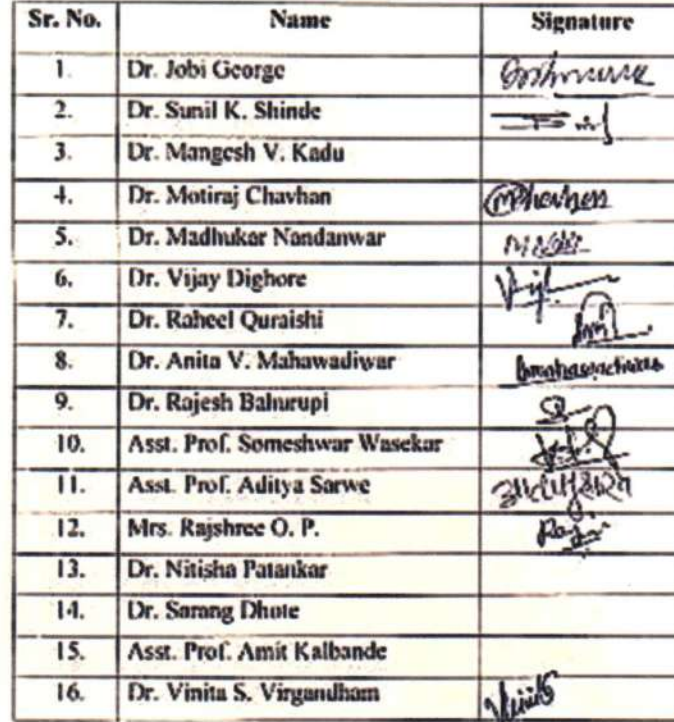 Sr. No. Name Signature
1. Dr. Jobi George
2. Dr. Sunil K. Shinde
3. Dr. Mangesh V. Kadu
4. Dr. Motiraj Chavhan
5. Dr. Madhukar Nandanwar
6. Dr. Vijay Dighore
7. Dr. Raheel Quraishi
8. Dr. Anita V. Mahawadiwar
9. Dr. Rajesh Bahurupi
10. Asst. Prof. Someshwar Wasekar
11. Asst. Prof. Aditya Sarwe
12. Mrs. Rajshree O. P.
13. Dr. Nitisha Patankar
14. Dr. Sarang Dhote
15. Asst. Prof. Amit Kalbande
16. Dr. Vinita S. Virgandham